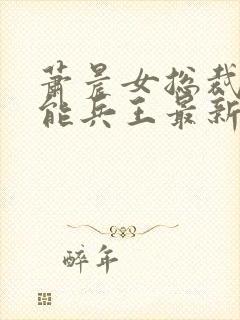 萧晨女总裁
能兵王最新
醉年